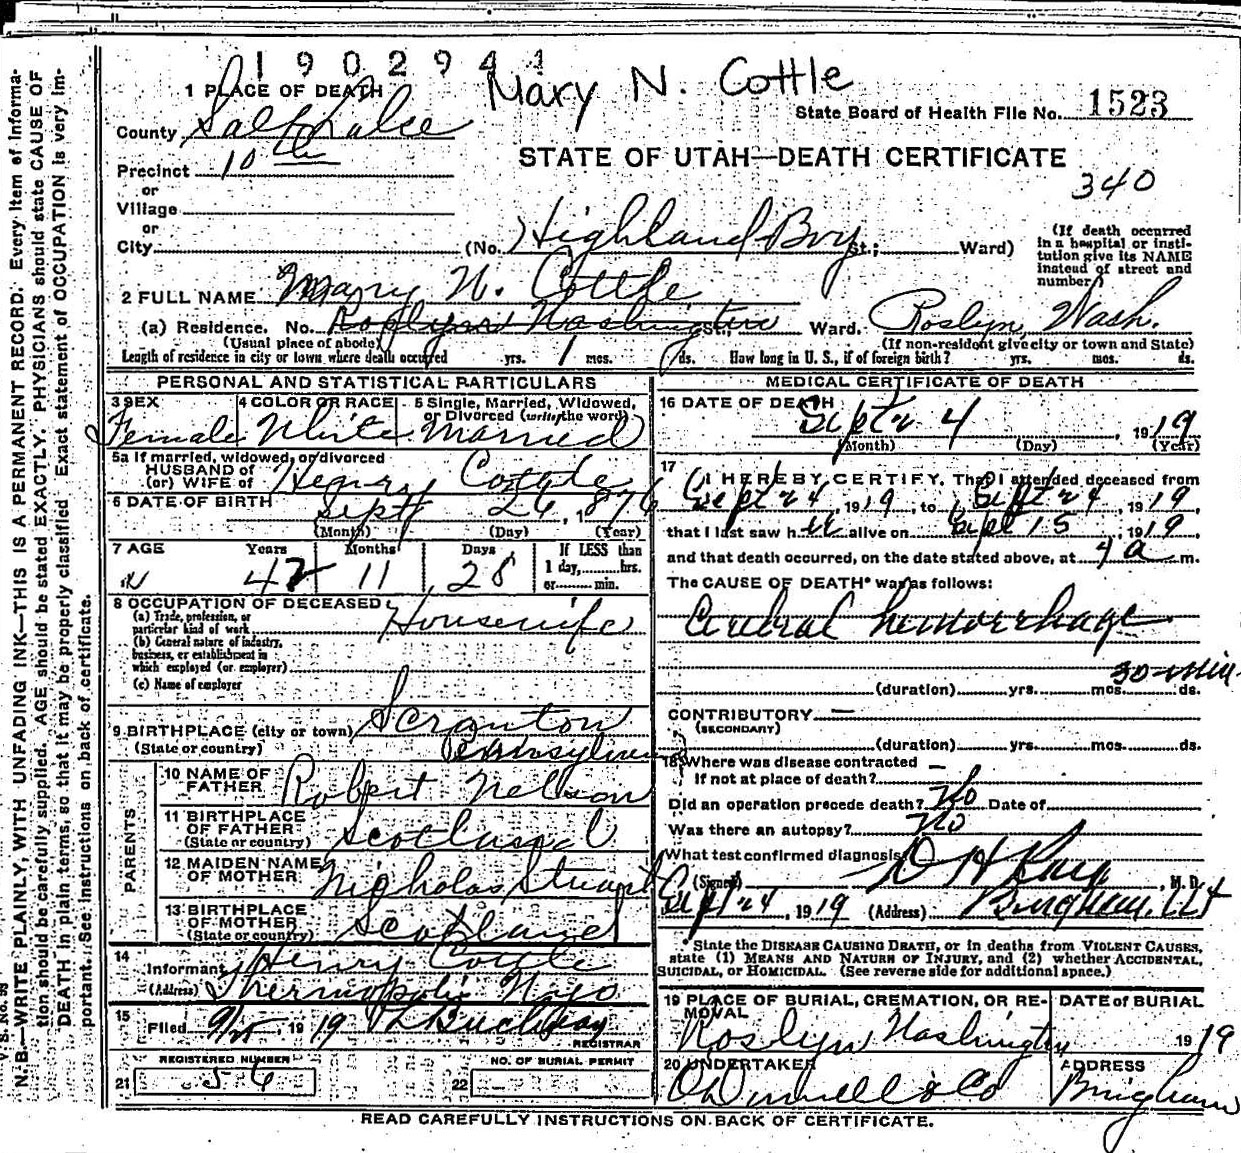 1902944
Mary N. Cottle
1 PLACE OF DEATH
State Board of Health File No. 1523
County Salt Lake
STATE OF UTAH—DEATH CERTIFICATE
Precinct 10th
340
or
Village
or
City (No. Highland Boy St.; Ward)
(If death occurred in a hospital or institution give its NAME instead of street and number)
2 FULL NAME Mary N. Cottle
(a) Residence. No. Roslyn Washington St., Ward. Roslyn, Wash.
(Usual place of abode) (If non-resident give city or town and State)
Length of residence in city or town where death occurred yrs. 1 mos. ds. How long in U. S., if of foreign birth? yrs. mos. ds.
PERSONAL AND STATISTICAL PARTICULARS
3 SEX 4 COLOR OR RACE 5 Single, Married, Widowed, or Divorced (write the word)
Female White Married
5a If married, widowed, or divorced
HUSBAND of
(or) WIFE of Henry Cottle
6 DATE OF BIRTH Sept 26, 1876
(Month) (Day) (Year)
7 AGE Years Months Days If LESS than
1 day, hrs.
or min.
42 11 28
8 OCCUPATION OF DECEASED
(a) Trade, profession, or
particular kind of work Housewife
(b) General nature of industry,
business, or establishment in
which employed (or employer)
(c) Name of employer
9 BIRTHPLACE (city or town) Scranton
(State or country) Pennsylvania
PARENTS
10 NAME OF FATHER Robert Nelson
11 BIRTHPLACE OF FATHER (State or country) Scotland
12 MAIDEN NAME OF MOTHER Nicholas Stuart
13 BIRTHPLACE OF MOTHER (State or country) Scotland
14 Informant Henry Cottle
(Address) Thermopolis Wyo
15 Filed 9/25, 1919
REGISTRAR
REGISTERED NUMBER NO. OF BURIAL PERMIT
21 56 22
MEDICAL CERTIFICATE OF DEATH
16 DATE OF DEATH
Sept 24, 1919
(Month) (Day) (Year)
17 I HEREBY CERTIFY, That I attended deceased from
Sept 24, 1919, to Sept 24, 1919
that I last saw her alive on Sept 15, 1919
and that death occurred, on the date stated above, at 4 a m.
The CAUSE OF DEATH* was as follows:
Cerebral hemorrhage
30 Min
(duration) yrs. mos. ds.
CONTRIBUTORY —
(SECONDARY)
(duration) yrs. mos. ds.
18 Where was disease contracted —
If not at place of death?
Did an operation precede death? No Date of
Was there an autopsy? No
What test confirmed diagnosis
(Signed) D H Ray, M. D.
Sept 24, 1919 (Address) Bingham, Ut
*State the DISEASE CAUSING DEATH, or in deaths from VIOLENT CAUSES,
state (1) MEANS AND NATURE OF INJURY, and (2) whether ACCIDENTAL,
SUICIDAL, or HOMICIDAL. (See reverse side for additional space.)
19 PLACE OF BURIAL, CREMATION, OR REMOVAL DATE of BURIAL
Roslyn Washington 1919
20 UNDERTAKER ADDRESS
O'Donnell & Co Bingham
READ CAREFULLY INSTRUCTIONS ON BACK OF CERTIFICATE.
V. S. No.
N. B.—WRITE PLAINLY, WITH UNFADING INK—THIS IS A PERMANENT RECORD. Every item of informa-
tion should be carefully supplied. AGE should be stated EXACTLY. PHYSICIANS should state CAUSE OF
DEATH in plain terms, so that it may be properly classified. Exact statement of OCCUPATION is very im-
portant. See instructions on back of certificate.